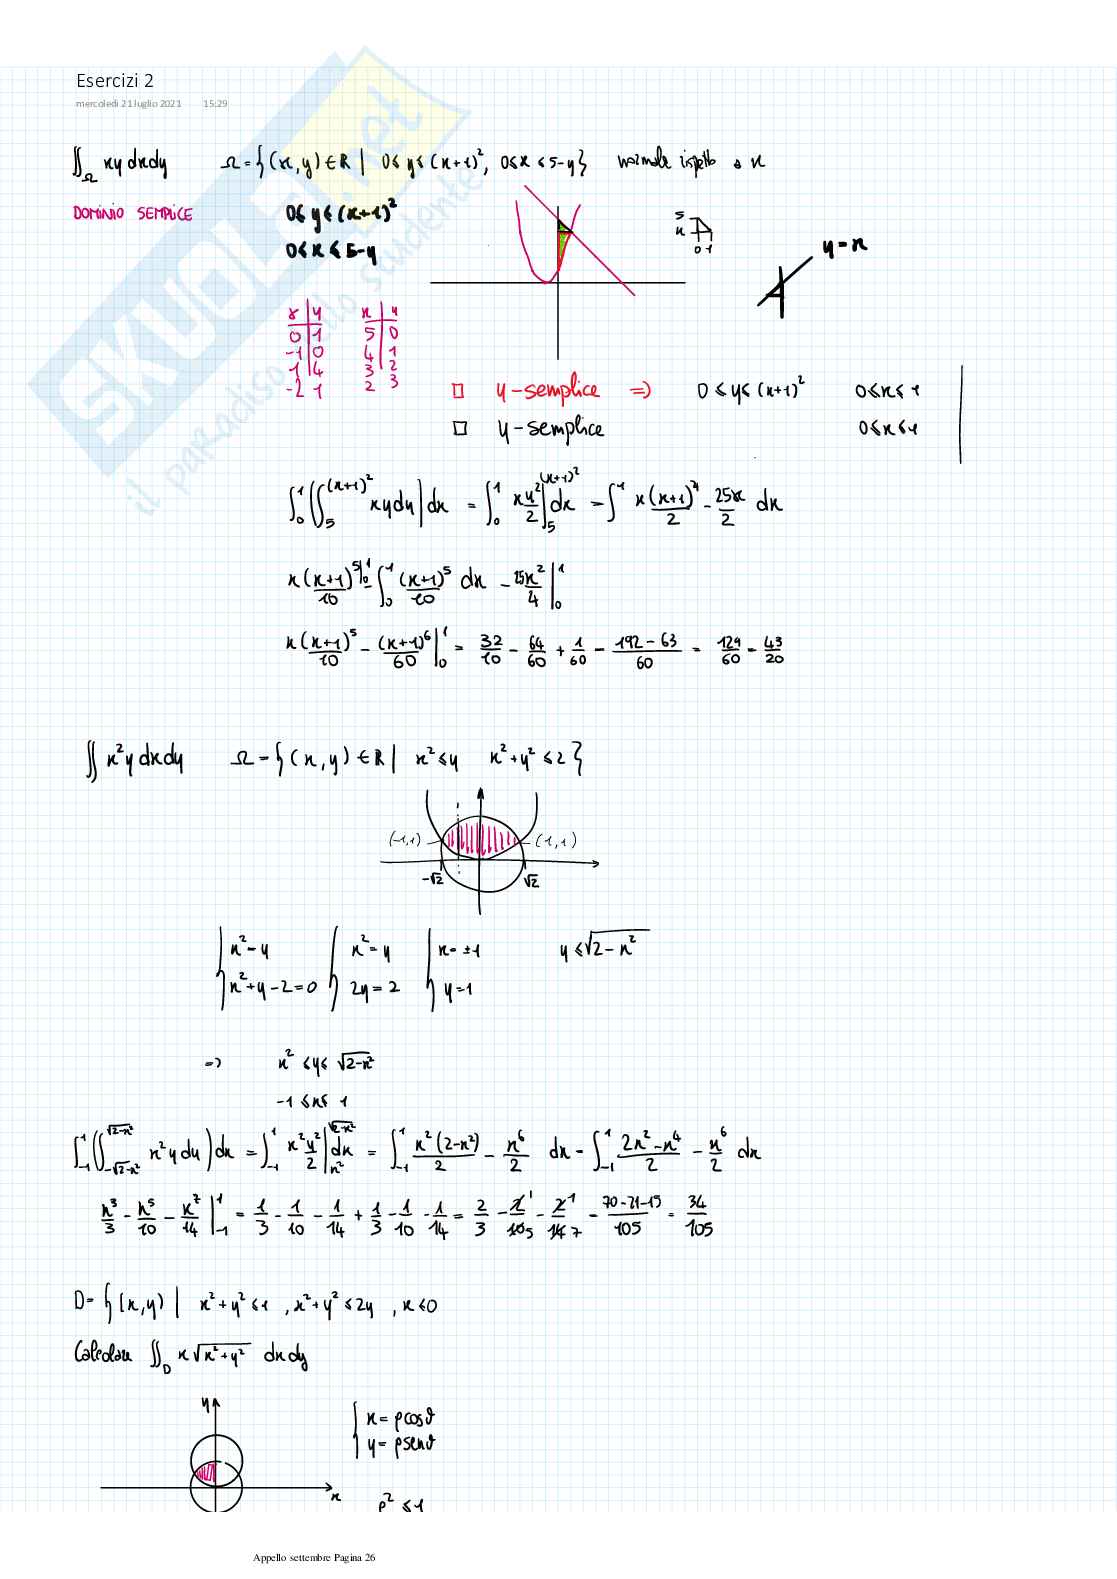 Esercizi 2
mercoledì 21 luglio 2021 15:29
∬_Ω xy dxdy Ω = {(x,y) ∈ R | 0≤ y ≤ (x+1)², 0≤x ≤5-y} normale rispetto a x
DOMINIO SEMPLICE
0≤ y ≤ (x+1)²
0≤ x ≤ 5-y
5
x
0 1
y = x
x | y x | y
0 | 1 5 | 0
-1 | 0 4 | 1
1 | 4 3 | 2
-2 | 1 2 | 3
□ y-semplice ⇒ 0 ≤ y ≤ (x+1)² 0≤x≤1
□ y-semplice 0≤x≤1
∫_0^1 (∫_5^{(x+1)²} xy dy) dx = ∫_0^1 xy²/2 |_5^{(x+1)²} dx = ∫^1 x(x+1)⁴/2 - 25x/2 dx
x(x+1)⁵/10 |_0^1 - ∫_0^1 (x+1)⁵/10 dx - 25x²/4 |_0^1
x(x+1)⁵/10 - (x+1)⁶/60 |_0^1 = 32/10 - 64/60 + 1/60 = 192-63/60 = 129/60 = 43/20
∬ x²y dxdy Ω = {(x,y) ∈ R | x² ≤ y x²+y² ≤ 2}
(-1,1) (1,1)
-√2 √2
{ x² = y { x² = y { x = ±1 y ≤ √2-x²
{ x²+y-2=0 { 2y = 2 { y = 1
⇒ x² ≤ y ≤ √2-x²
-1 ≤ x ≤ 1
∫_-1^1 (∫_{-√2-x²}^{√2-x²} x²y dy) dx = ∫_-1^1 x²y²/2 |_{x²}^{√2-x²} dx = ∫_-1^1 x²(2-x²)/2 - x⁶/2 dx = ∫_-1^1 2x²-x⁴/2 - x⁶/2 dx
x³/3 - x⁵/10 - x⁷/14 |_-1^1 = 1/3 - 1/10 - 1/14 + 1/3 - 1/10 - 1/14 = 2/3 - 2 1/10 5 - 2 1/14 7 = 70-21-15/105 = 34/105
D = {(x,y) | x²+y² ≤ 1 , x²+y² ≤ 2y , x ≤ 0
Calcolare ∬_D x√x²+y² dxdy
y
x
{ x = ρcosϑ
{ y = ρsenϑ
ρ² ≤ 1
Appello settembre Pagina 26
SKUOLA.net
il paradiso dello studente